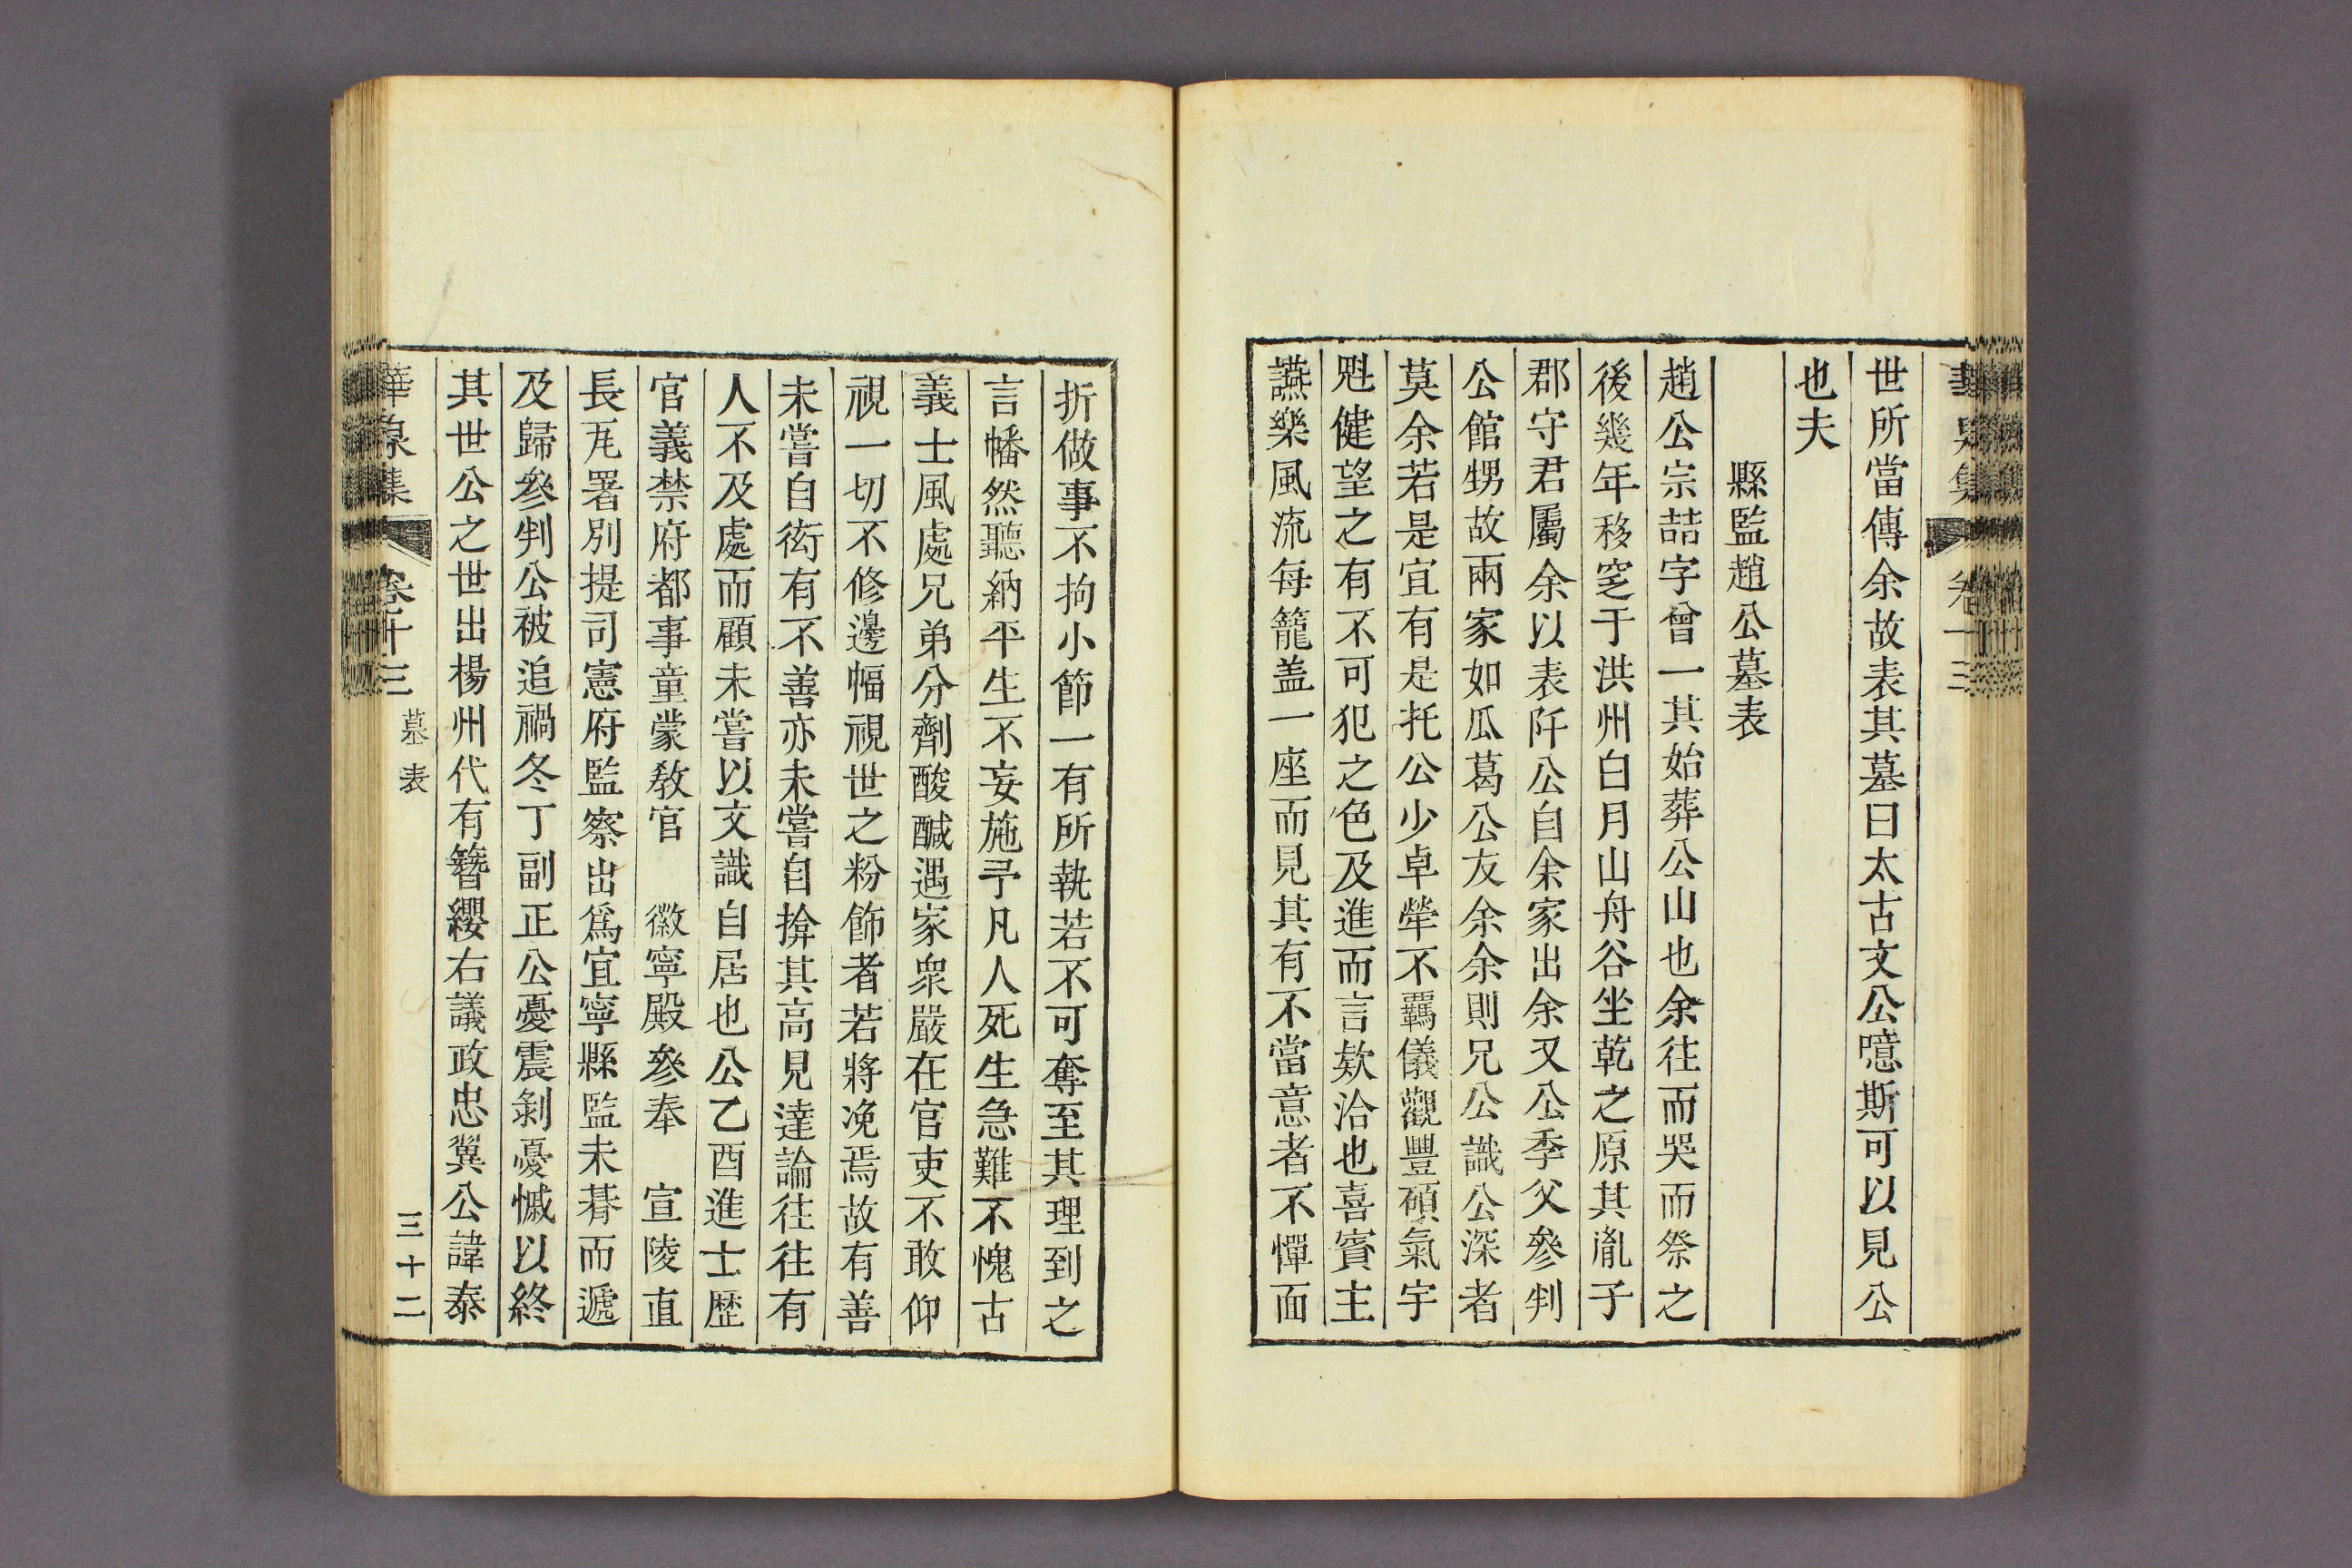 世所當傳余故表其墓曰太古文公噫斯可以見公
也夫
縣監趙公墓表
趙公宗喆字曾一其始葬公山也余往而哭而祭之
後幾年移窆于洪州白月山舟谷坐乾之原其胤子
郡守君屬余以表阡公自余家出余又公季父參判
公館甥故兩家如瓜葛公友余余則兄公識公深者
莫余若是宜有是托公少卓犖不羈儀觀豐碩氣宇
魁健望之有不可犯之色及進而言欵洽也喜賓主
讌樂風流每籠盖一座而見其有不當意者不憚面
折做事不拘小節一有所執若不可奪至其理到之
言幡然聽納平生不妄施予凡人死生急難不愧古
義士風處兄弟分劑酸醎遇家衆嚴在官吏不敢仰
視一切不修邊幅視世之粉飾者若將浼焉故有善
未嘗自衒有不善亦未嘗自揜其高見達論往往有
人不及處而顧未嘗以文識自居也公乙酉進士歷
官義禁府都事童蒙敎官 徽寧殿參奉 宣陵直
長瓦署別提司憲府監察出爲宜寧縣監未朞而遞
及歸參判公被追禍冬丁副正公憂震剝憂慽以終
其世公之世出楊州代有簪纓右議政忠翼公諱泰
集 卷十三 墓表 三十二